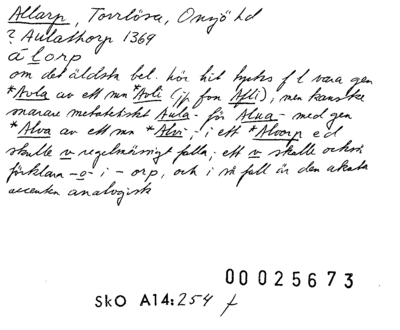 Allarp, Torrlösa, Onsjö hd
? Aulathorp 1369
á l orp
om det äldsta bel. hör hit tycks f l vara gen
*Avla av ett mn *Avli (jf fvn Afli), men kanske
snarare metatetiskt Aula- för Alua- med gen
*Alva av ett mn *Alvi; i ett *Alvorp e d
skulle v regelmässigt falla; ett v skulle också
förklara -o- i -orp, och i så fall är den akuta
accenten analogisk
00025673
SkO A14:254